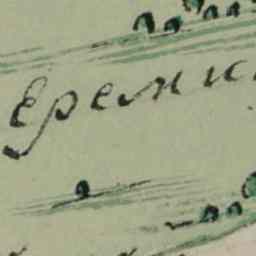 Ереми